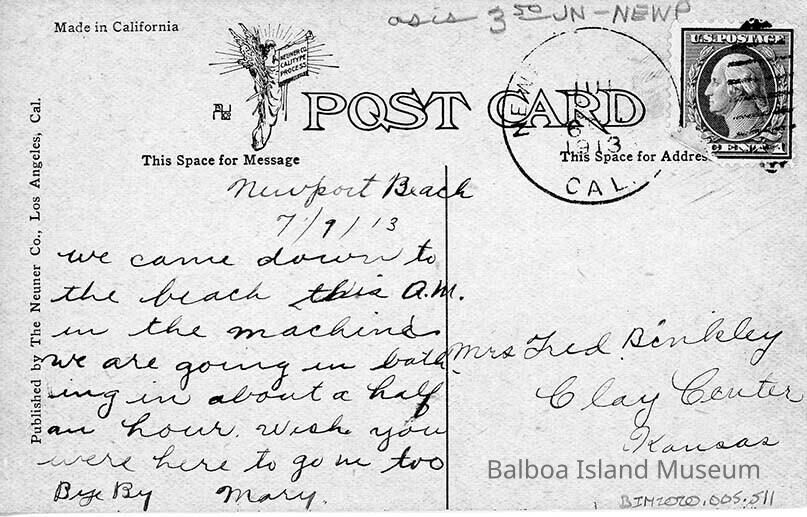 Made in California
asis 3 50 JN-NEWP
NEUNER CO.
CALITYPE
PROCESS
POST CARD
U.S. POSTAGE
CENTS
1913
CAL.
This Space for Message
This Space for Address
Newport Beach
7/9/13
we came down to
the beach this A.M.
in the machines
we are going in bath
ing in about a half
an hour. wish you
were here to go in too
Bye By Mary.
Mrs Fred Binkley
Clay Center
Kansas
Published by The Neuner Co., Los Angeles, Cal.
Balboa Island Museum
BIM2020.005.511